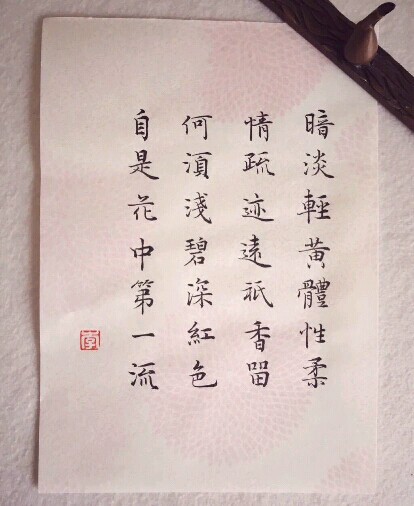 暗淡輕黃體性柔
情疏迹遠祇香留
何湏淺碧深紅色
自是花中第一流